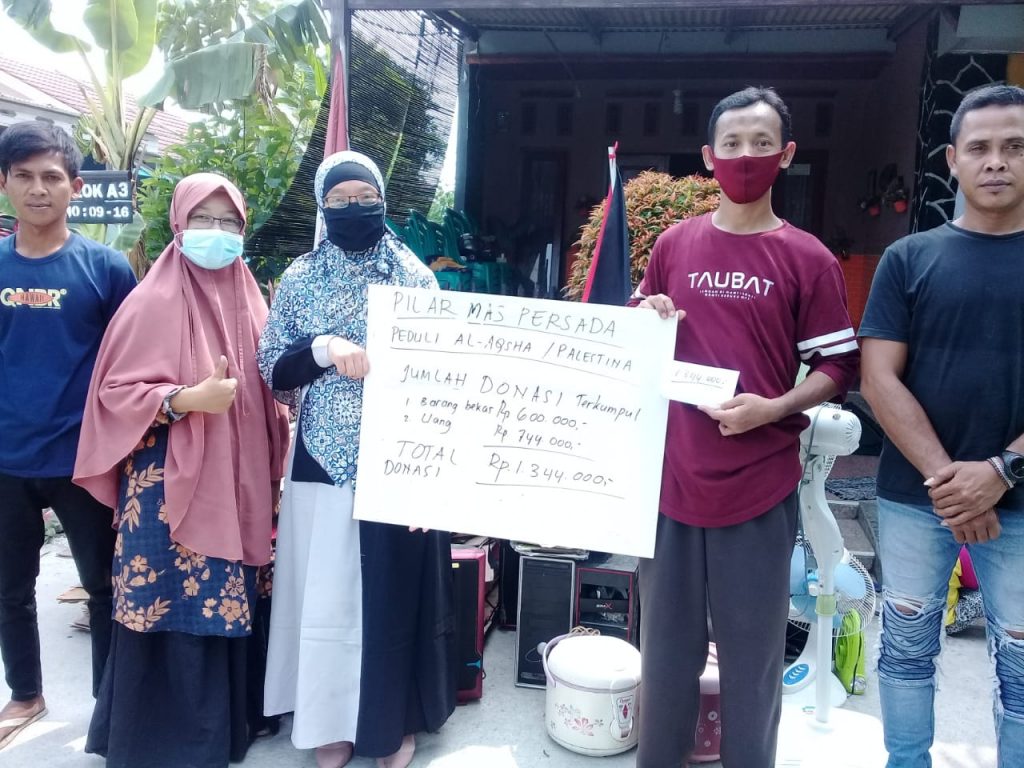 LOK A3
NO: 09-16
HAWAII
PILAR MAS PERSADA
PEDULI AL-AQSHA / PALESTINA
JUMLAH DONASI Terkumpul
1 Barang bekas Rp 600.000,-
2. Uang Rp 744 000,-
TOTAL DONASI Rp. 1.344.000,-
1.344.000,-
TAUBAT